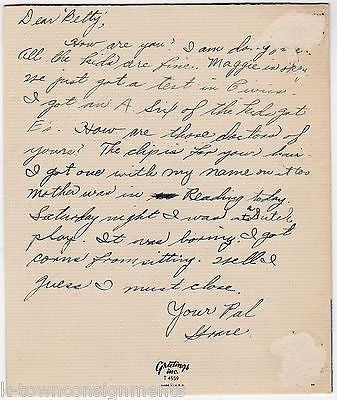 Dear Betty,
How are you? I am doing fine.
All the kids are fine. Maggie is
We just got a test in Civics
I got an A. Six of the kids got
E's. How are those doctors of
yours? The clip is for your hair
I got one with my name on it too
Mother was in Reading today.
Saturday night I was at a Dutch
play. It was boring. I got
corns from sitting. Well I
guess I must close.
Your Pal
Greetings
inc.
T 4559
MADE IN U.S.A.
k-townconsignments